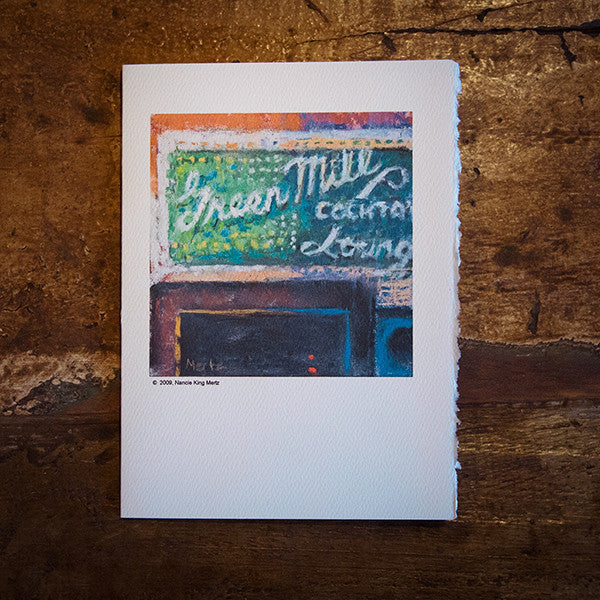 Green Mill
COCKTAI
Loung
Mertz
© 2009, Nancie King Mertz